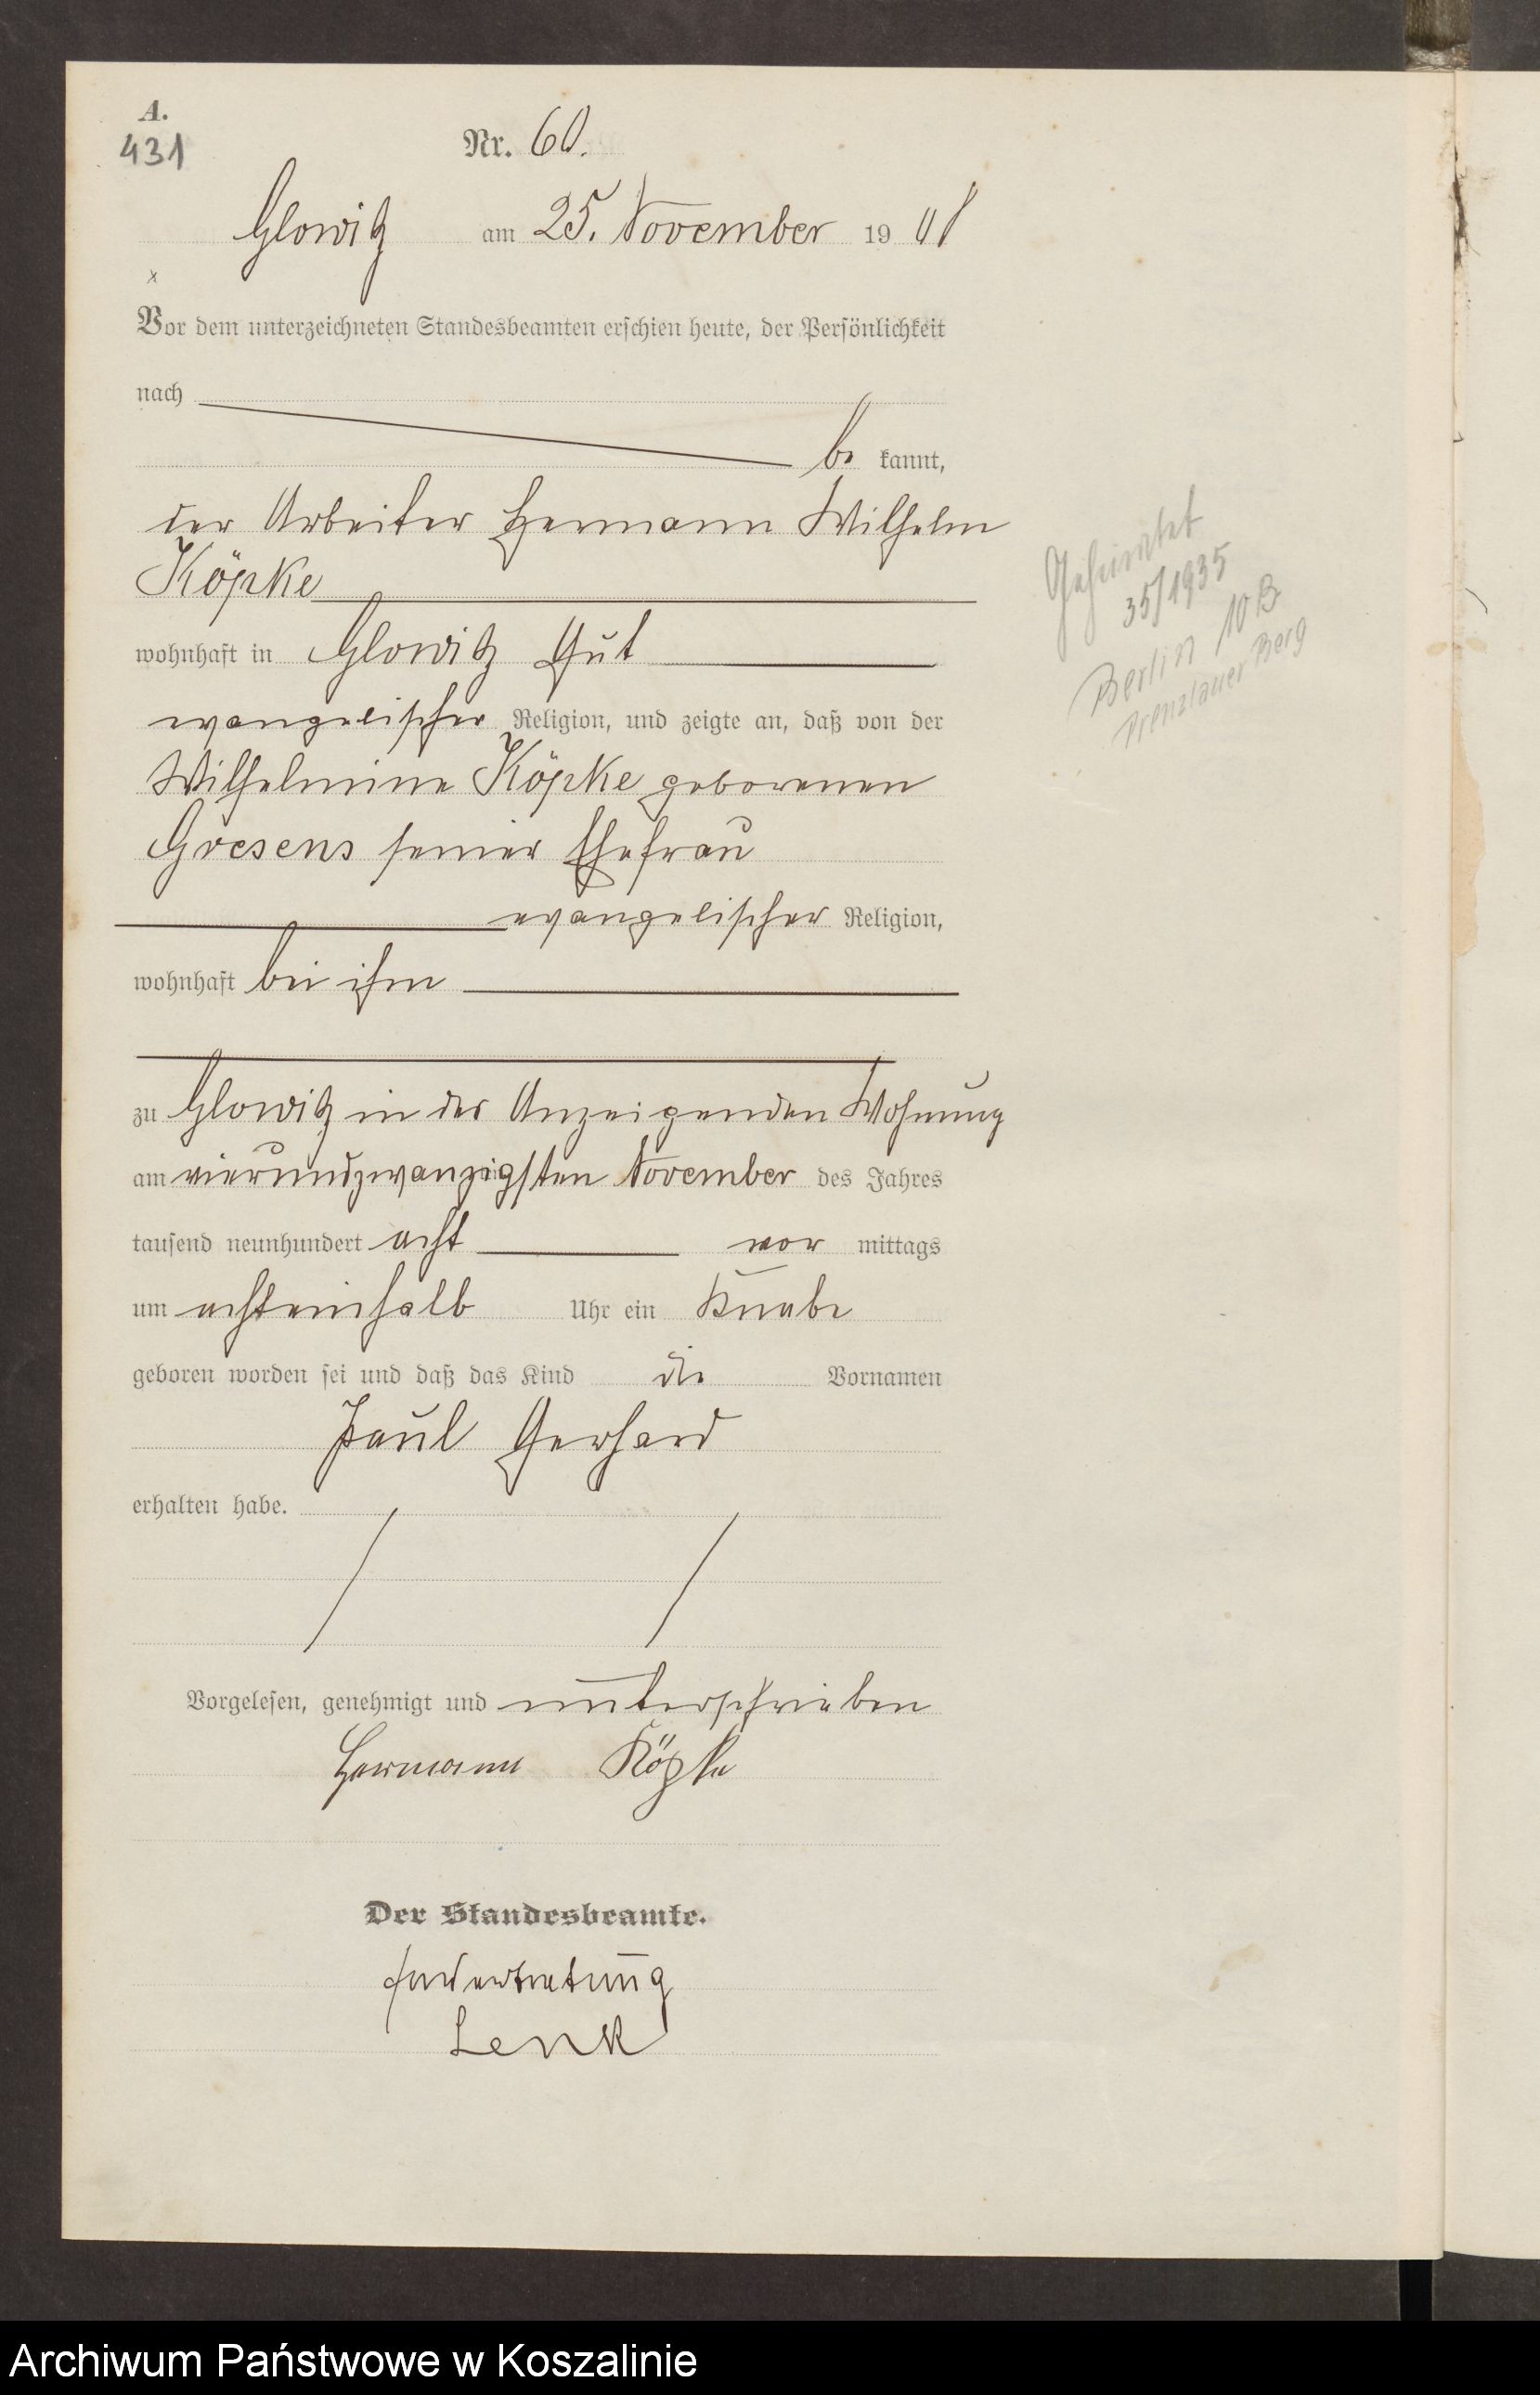 A.
431
Nr. 60.
Glowitz am 25. November 1908
Vor dem unterzeichneten Standesbeamten erschien heute, der Persönlichkeit
nach
be kannt,
der Arbeiter Hermann Wilhelm
Köpke
wohnhaft in Glowitz Gut
evangelischer Religion, und zeigte an, daß von der
Wilhelmine Köpke geborenen
Gresens seiner Ehefrau
evangelischer Religion,
wohnhaft bei ihm
zu Glowitz in des Anzeigenden Wohnung
am vierundzwanzigsten November des Jahres
tausend neunhundert acht vor mittags
um achteinhalb Uhr ein Knabe
geboren worden sei und daß das Kind die Vornamen
Paul Gerhard
erhalten habe.
Vorgelesen, genehmigt und unterschrieben
Hermann Köpke
Der Standesbeamte.
In Vertretung
Lenk
Geheiratet
35/1935
Berlin 10B
Prenzlauer Berg
Archiwum Państwowe w Koszalinie